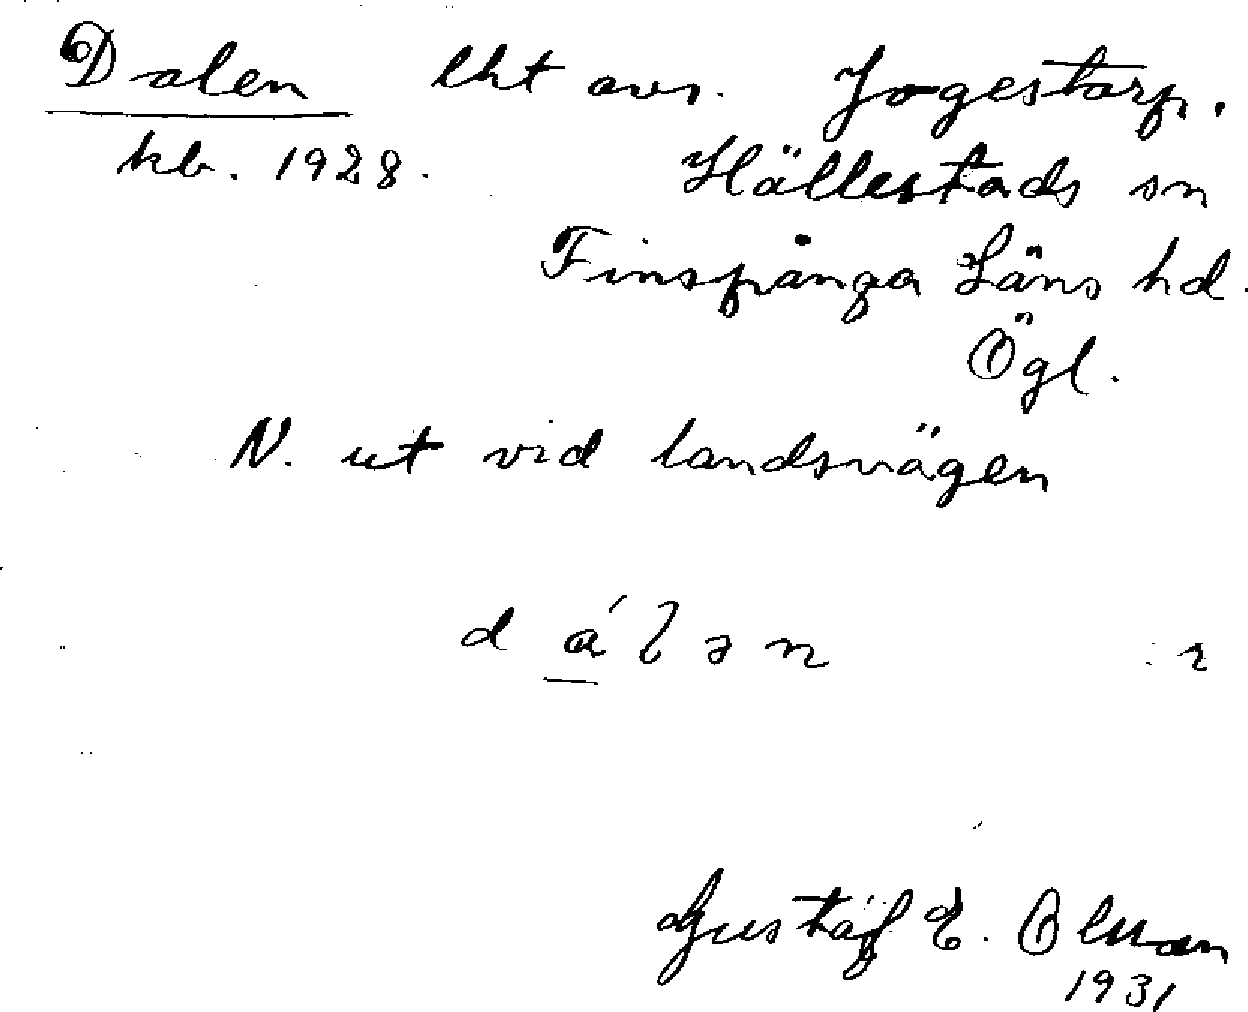 Dalen lht avs. Jogestorp.
kb. 1928. Hällestads sn
Finspånga Läns hd.
Ögl.
N. ut vid landsvägen
dálən
Gustaf E. Olman
1931